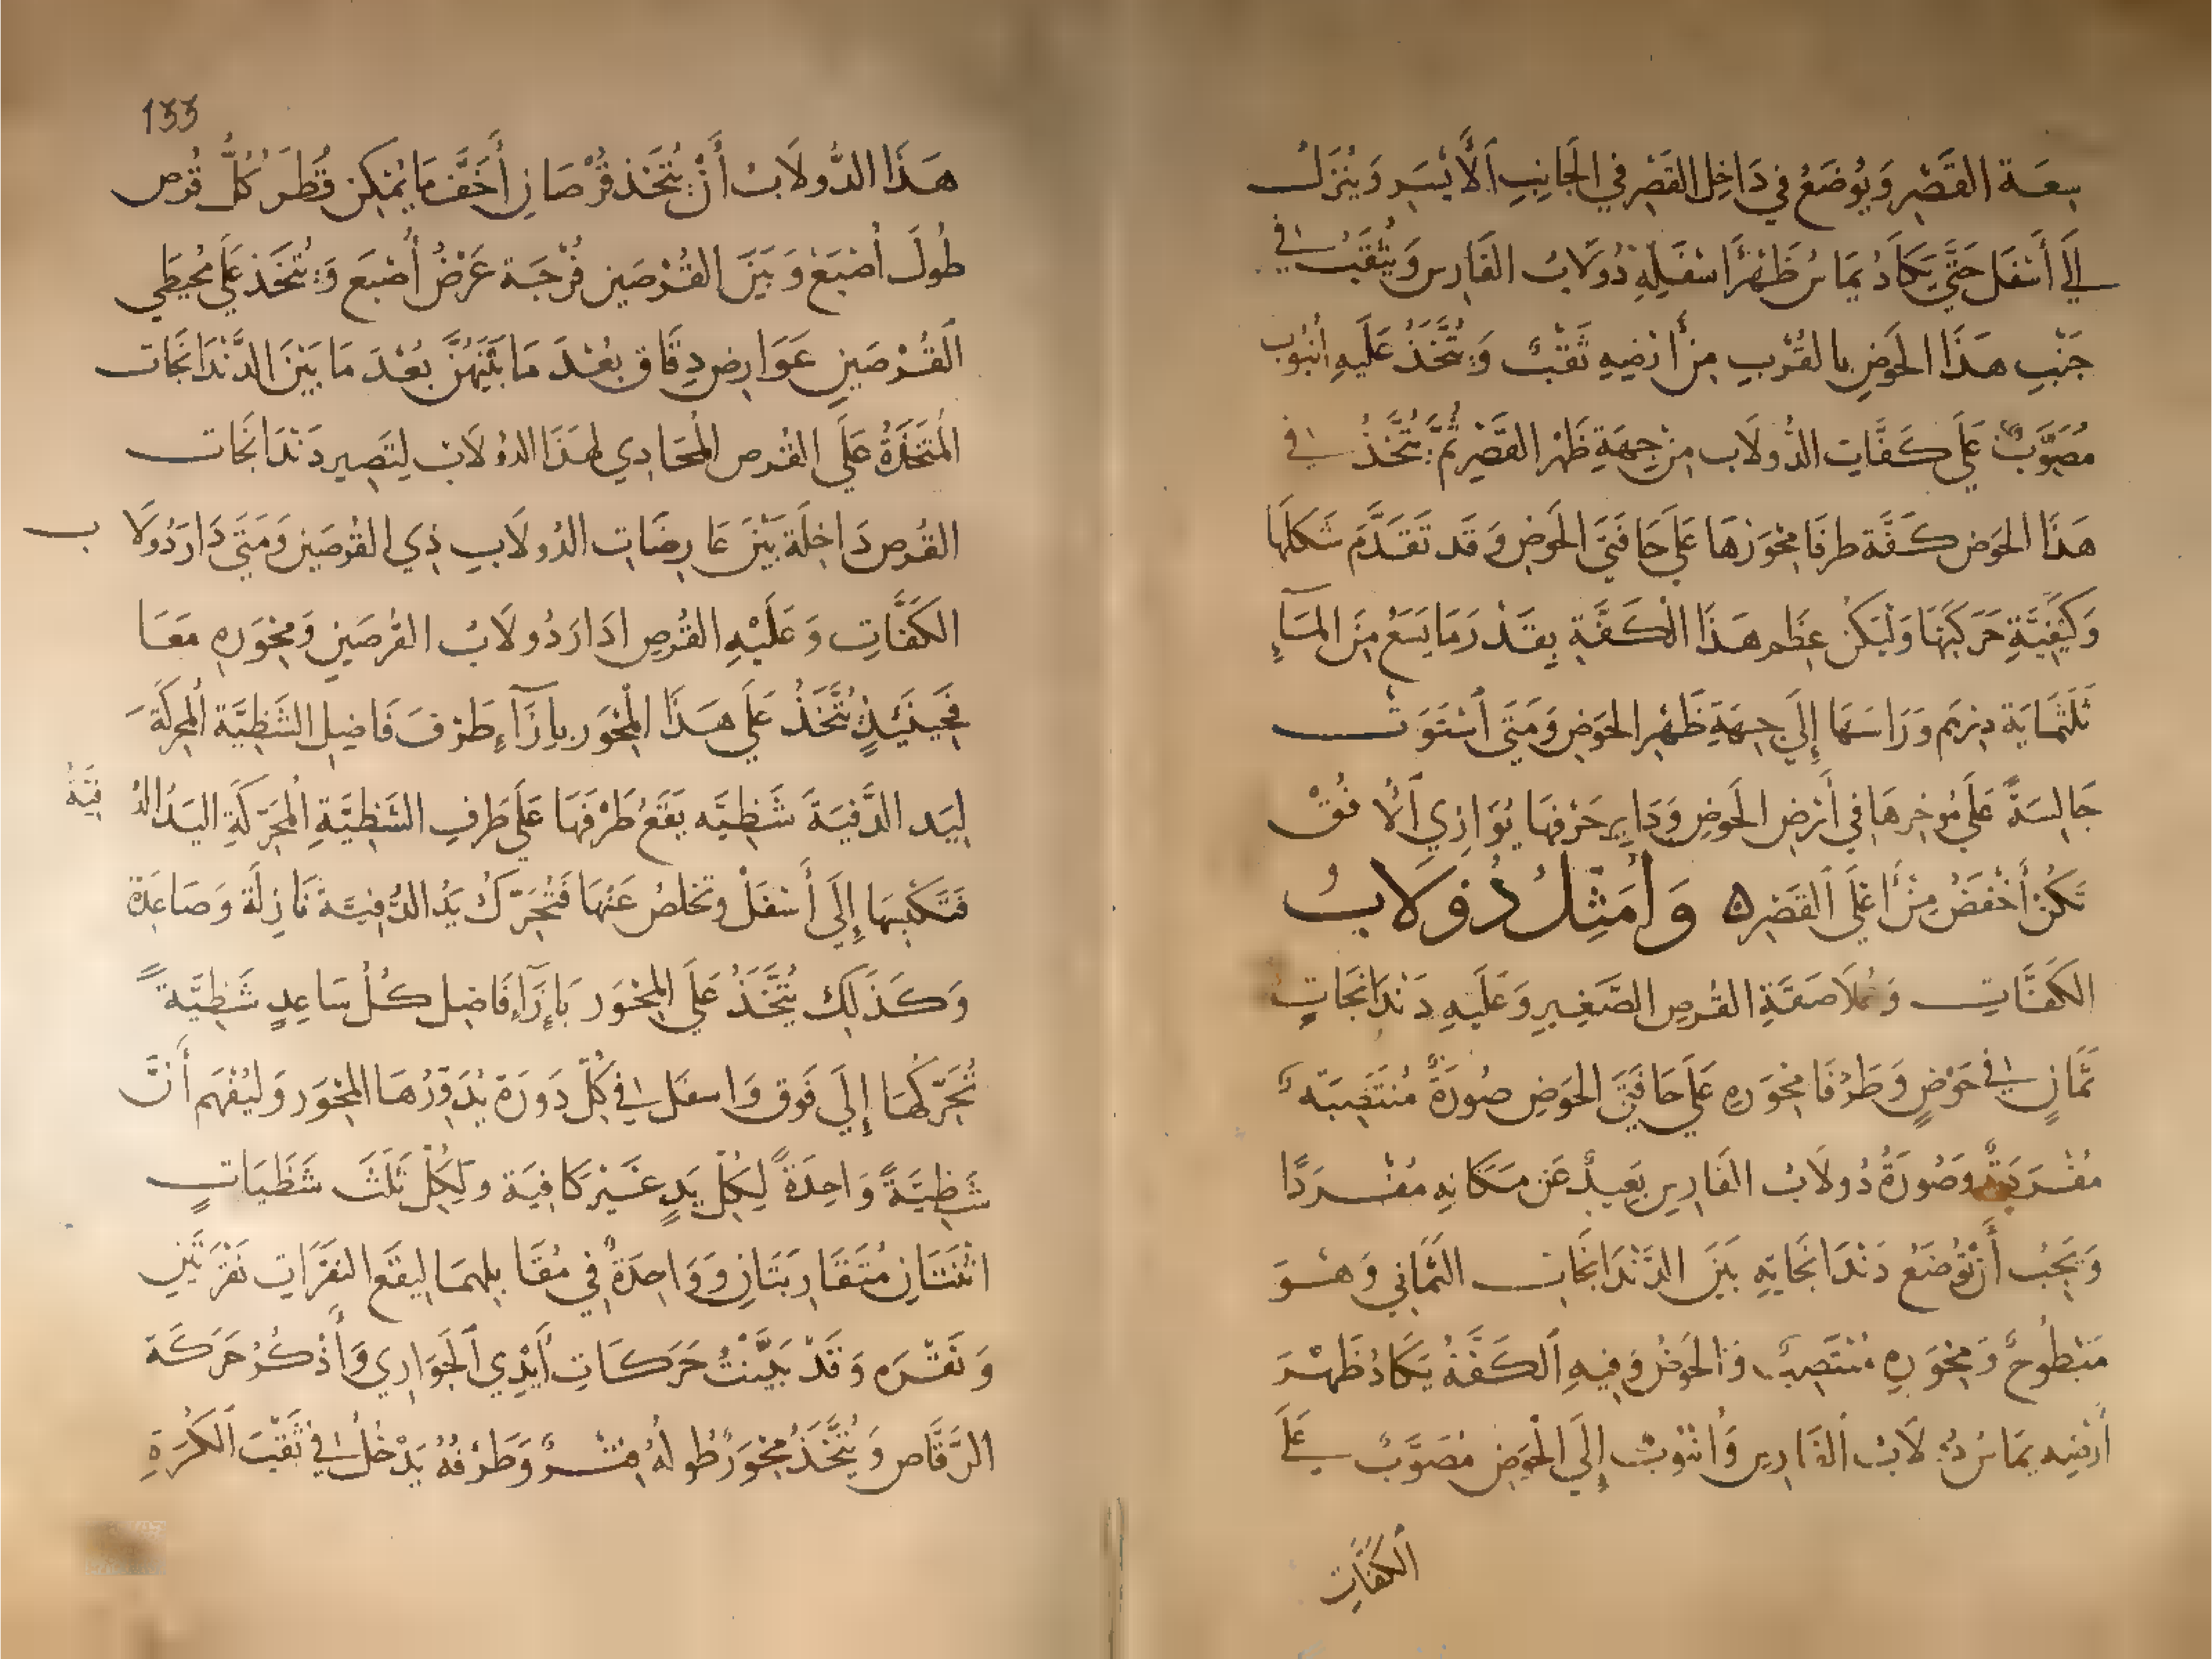 سعَة القَصْر وَيُوضَعُ في دَاخِل القَصْر في الجَانِبِ الأَيْسَر وَيُنَزل
إلَى أَسْفَل حَتَّى يَكَادُ يمَاسُ ظَهْرُ اسْفَلِهِ دُولَابُ الفَارس وَيُثقَبُ في
جَنْبِ هَذَا الحَوَضِ بالقُرْبِ مِنْ أرْضِهِ ثَقْبٌ وَيُتَّخَذُ عَلَيهِ أنبُوب
مُصَوَّبٌ عَلَى كَفَّاتِ الدُّولَاب مِنْ جِهَةِ ظَهْر القَصْرِ ثُمَّ يُتَّخَذُ في
هَذَا الحَوَضِ كَفَّة طرفَا مِحْوَرهَا عَلَى حَافَتَي الحَوَضِ وَقَد تَقَدَّمَ شَكلهَا
وَكَيْفِيَّةِ حَرَكَتِهَا وَليَكنْ عِظَم هَذَا الكَفَّة بِقَدْرِ مَا يَسَعُ مِنَ المَآءِ
ثَلَثمَايَة دِرْهَم وَرَاسَهَا إِلَى جِهَةِ ظَهْر الحَوَضِ وَمَتَى اسْتَوَتْ
جَالِسَةً عَلَى مُوخِرهَا في أرْضِ الحَوَضِ وَدَاير حَرْفهَا يُوَازِي الأُفُقْ
تَكُنْ أخْفَضُ مِنْ أَعْلَى القَصْرِ ٥ وَأُمَثِلُ دُوْلَابُ
الكَفَّاتِ وَمُلَاصَقَةِ القُرصِ الصَّغِيرِ وَعَلَيهِ دَنْدَانجَاتٍ
ثَمَانٍ في حَوْضٍ وَطَرْفَا مِحْوَرهِ عَلَى حَافَتَي الحَوَضِ صُورَةً مُنْتَصِبَة
مُفْرَدَةً وَصُورَةُ دُولَابُ الفَارس بَعِيدٌ عَن مَكَانِهِ مُفْرَدًا
وَيَجَبُ أَنْ تُوضَعُ دَنْدَانجَاتِهِ بَيْنَ الدَّنْدَانجَات الثَّمَاني وَهُوَ
مَبْطُوحٌ وَمِحْوَرهِ مُنْتَصِبٌ وَالحَوَضُ وَفِيهِ الكَفَّةُ يَكَادُ ظَهْرَ
أرْضِهِ يمَاسُ دُولَابُ الفَارس وَأُنْبُوبُ إلَى الحَوَضِ مُصَوَّبٌ عَلَى
الكَفَّاتِ
133
هَذَا الدُّولَابُ أَنْ يُتَّخَذ قُرْصَانِ أَخَفَّ مَا يُمْكِن قُطرُ كُلّ قُرْص
طُولَ أُصْبَعْ وَبَيْنَ القُرْصَينِ فُرْجَة عَرْضُ أُصْبَع وَيُتَّخَذ عَلَى مُحيطَي
القُرْصَينِ عَوَارِض دِقَاق بعْدَ مَا بَيْنَهُنَّ بُعْدَ مَا بَيْنَ الدَّنْدَانجَات
المُتَّخَذَةُ عَلَى القُرص المُحَادِي لِهَذَا الدُولَابْ لِتَصِير دَنْدَانجَات
القُرص دَاخِلَة بَيْنَ عَارِضَاتِ الدُولَابِ ذِي القُرْصَينِ وَمَتَى دَارَ دُولَاب
الكَفَّاتِ وَعَلَيْهِ القُرصِ ادَارَ دُولَابُ القُرصَينِ وَمِحْوَرهِ مَعَا
فَحِينَئِذٍ يُتَّخَذُ عَلَى هَذَا المِحْوَر بِازَآءِ طَرْفَ فَاضِل الشَّظِيَّة المُحَركَة
لِيَد الدَّفيَةَ شَظِيَّه يَقَعُ طَرْفَهَا عَلَى طَرفِ الشَظِيَّةِ المُحَرّكَةِ اليَدُ الدُفيَّةُ
فَتَكْبِسهَا إِلَى أَسْفَلْ وَتَخلصُ عَنْهَا فَتُحَرَّكُ يَدُ الدُّفِيَّة نَازِلَةً وَصَاعِدَة
وَكَذَلِكَ يُتَّخَذُ عَلَى المِحْوَر بَإِزَاءِ فَاضِل كُلُ سَاعِدٍ شَظِيَّةً
تُحَرّكهَا إِلَى فَوق وَاسفَل في كلّ دَوَرَة يُدَوّرُهَا المِحْوَر وَليُفْهَم أَنَّ
شَظِيَّةً وَاحِدَةً لِكُلّ يَدٍ غَيْر كَافِيَة وَلِكُلّ ثَلَثَ شَظِيَاتٍ
اثْنَتَانِ مُتَقَارِبَتَانِ وَوَاحِدَةٌ في مُقَابِلهمَا ليَقَع النَقَرَاتِ نَقْرَتَيْنِ
وَنَقْرَه وَقَدْ بَيَّنْتُ حَرَكَاتِ أَيْدِي الجَوَاري وَأَذْكُرُ حَرَكَةَ
الرَّقَّاص وَيُتَّخَذُ مِحْوَرٌ طُولهُ فِتْرٌ وَطَرْفُهُ يَدْخُلُ في ثَقْبَ الكُرَةِ